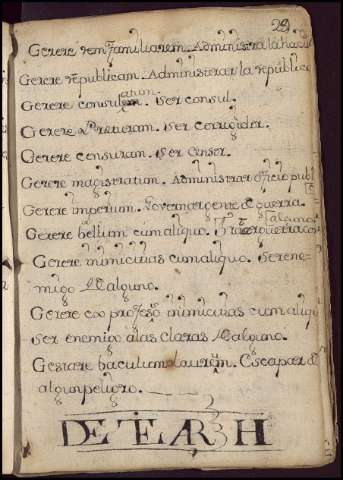 29
Gerere rem familiarem. Administrar la haci
Gerere rẽpublicam. Administrar la republica
Gerere consulatum. Ser consul.
Gerere Preturam. Ser corrigidor.
Gerere censuram. Ser censor.
Gerere magistratum. Administrar oficio publ
Gerere imperium. Governar gente de guerra.
Gerere bellum cum aliquo. Traer guerra con alguno
Gerere inimicitias cum aliquo. Ser ene-
migo de alguno.
Gerere ex professo inimicitias cum aliqu
Ser enemigo alas claras de alguno.
Gestare baculum laureum. Escapar de
algun peligro.
DE TE AR H